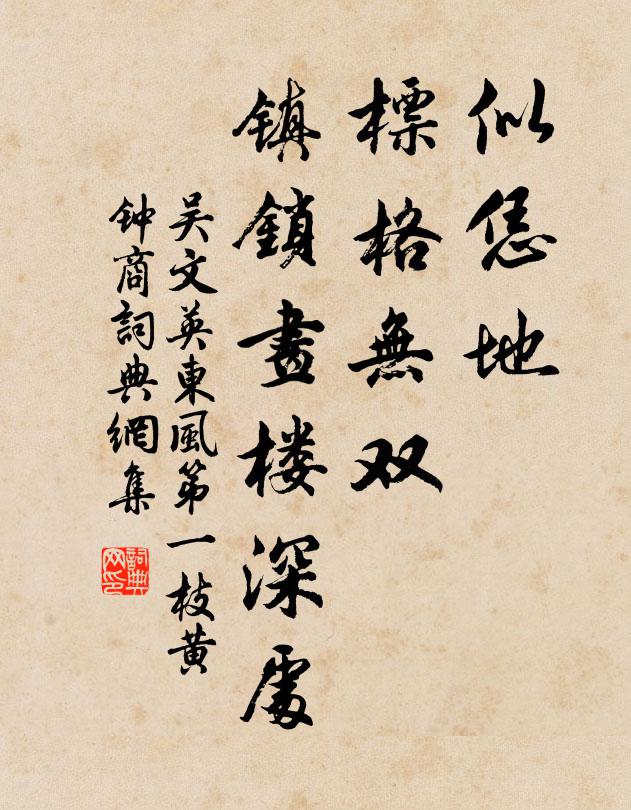 似恁地
標格無双
鎮鎖畫楼深處
吴文英東風第一枝黄
钟商詞典網集
詞典
网印